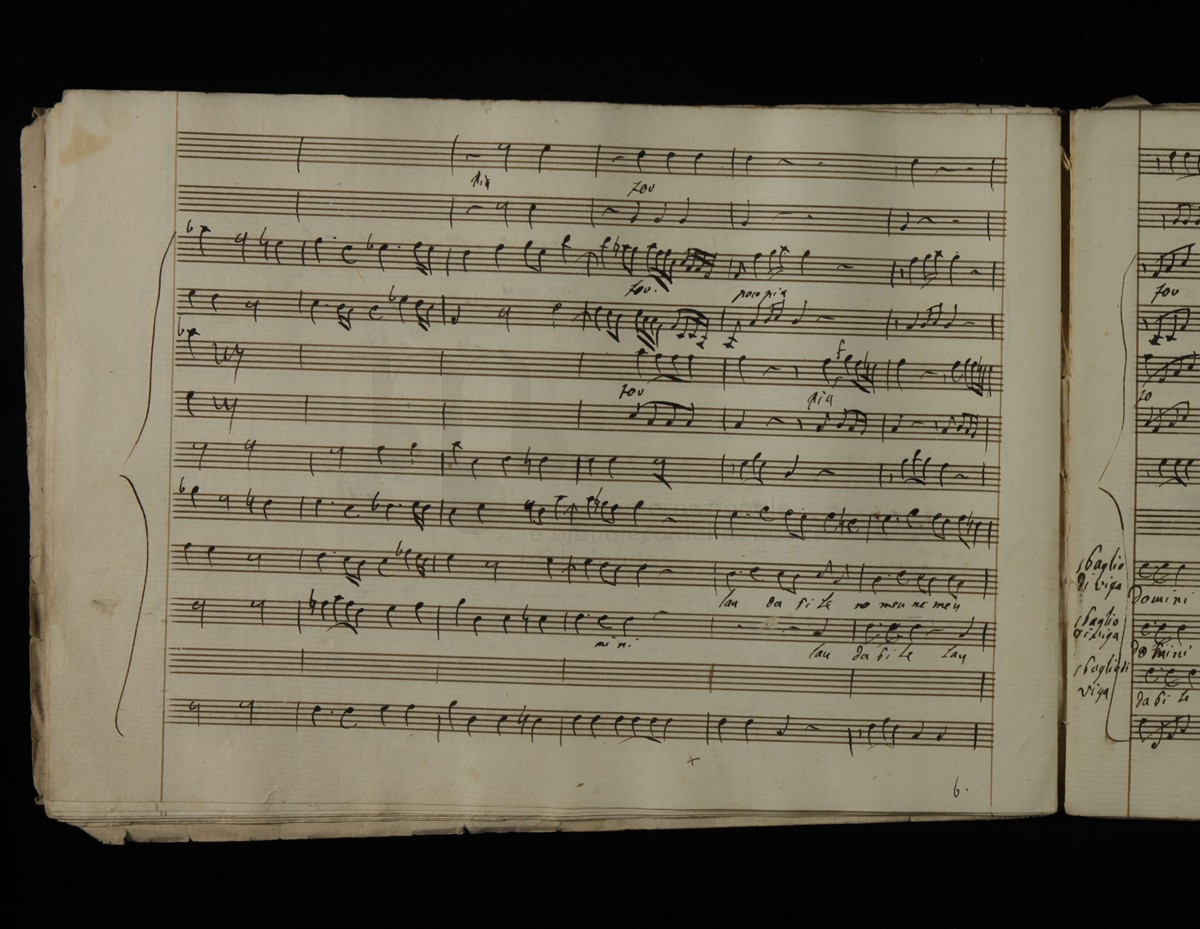 pia
for
for.
poco pia
for
pia
f
lau da bi te no men no men
mi ni
lau da bi te lau
6.
for
fo
sbaglio
di riga
Domini
sbaglio
di riga
Domini
sbaglio di
riga
da bi te